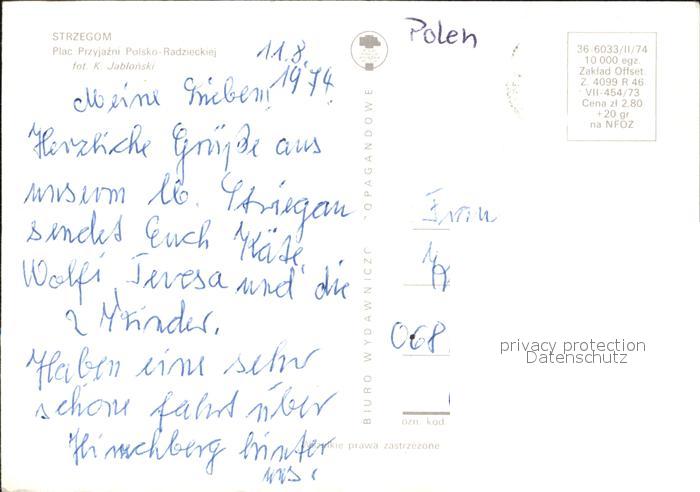 STRZEGOM
Plac Przyjaźni Polsko-Radzieckiej
fot. K. Jabłoński
11.8.
1974.
Meine Lieben!
Herzliche Grüße aus
unserm lb. Striegau
sendet Euch Käte,
Wolfi, Teresa und die
2 Kinder.
Haben eine sehr
schöne fahrt über
Hirschberg hinter
uns.
BIURO WYDAWNICZO OPAGANDOWE
Polen
36-6033/II/74
10 000 egz.
Zakład Offset.
Z. 4099 R 46
VII-454/73
Cena zł 2.80
+20 gr
na NFOZ
Frau
068
privacy protection
Datenschutz
ozn. kod.
prawa zastrzeżone